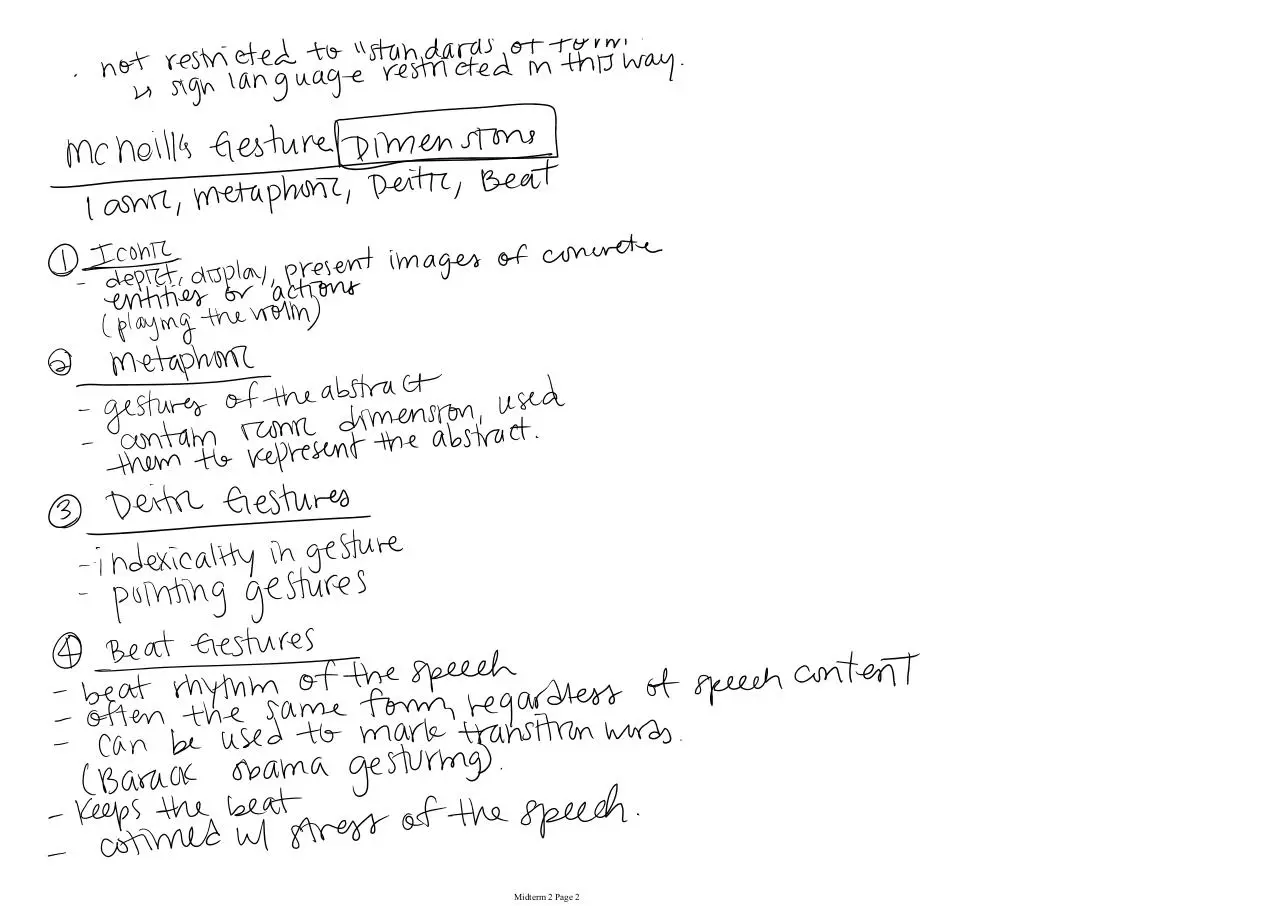 · not restricted to "standards of form
↳ sign language restricted in this way.
McNeill's Gesture Dimensions
Iconic, metaphoric, Deitic, Beat
① Iconic
- depict, display, present images of concrete
entities or actions
(playing the violin)
② metaphoric
- gestures of the abstract
- contain iconic dimension, used
them to represent the abstract.
③ Deitic Gestures
- indexicality in gesture
- pointing gestures
④ Beat Gestures
- beat rhythm of the speech
- often the same form, regardless of speech content
- can be used to mark transition words.
(Barack Obama gesturing).
- Keeps the beat
- cotimed w/ stress of the speech.
Midterm 2 Page 2